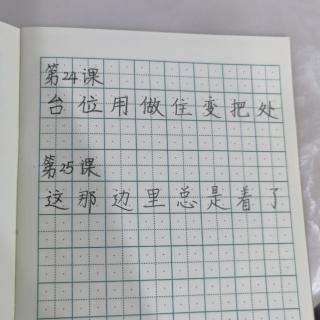 第24课
台位用做住变把处
第25课
这那边里总是着了